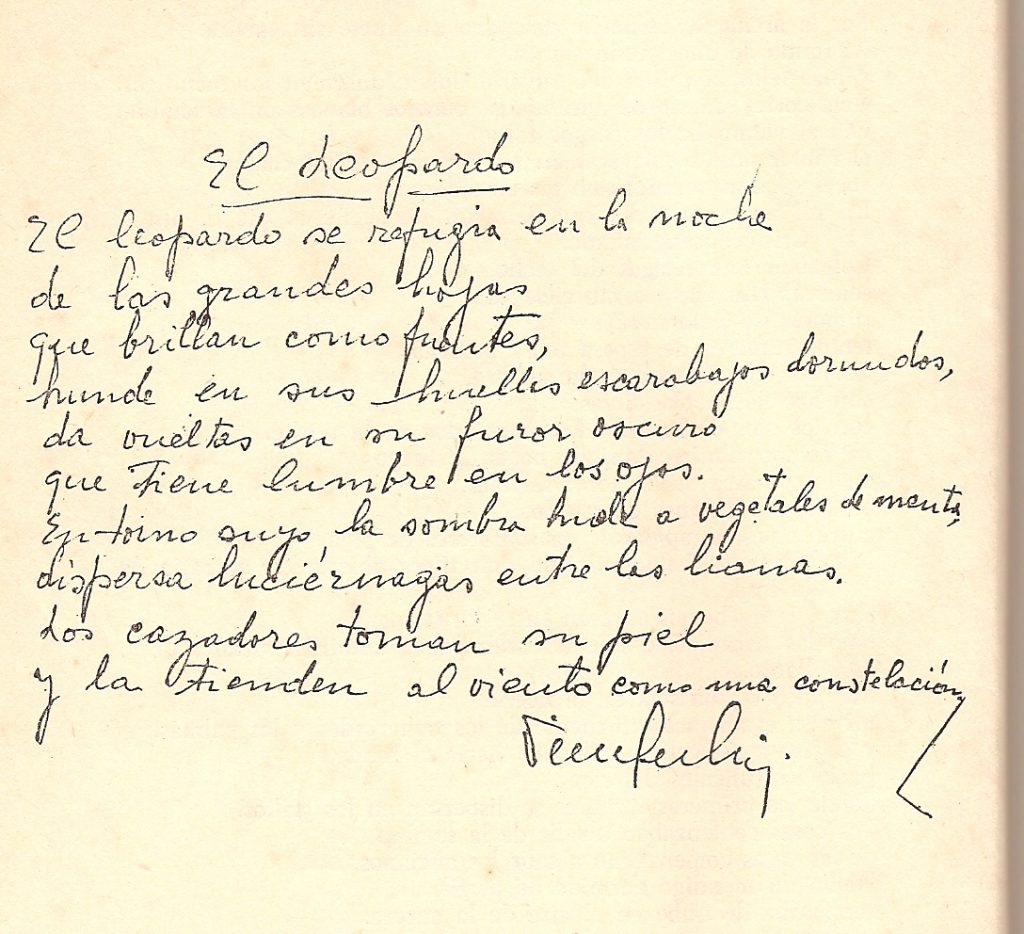 El Leopardo
El leopardo se refugia en la noche
de las grandes hojas
que brillan como fuentes,
hunde en sus huellas escarabajos dormidos,
da vueltas en su furor oscuro
que tiene lumbre en los ojos.
En torno suyo la sombra huele a vegetales de menta,
dispersa luciérnagas entre las lianas.
Los cazadores toman su piel
y la tienden al viento como una constelación